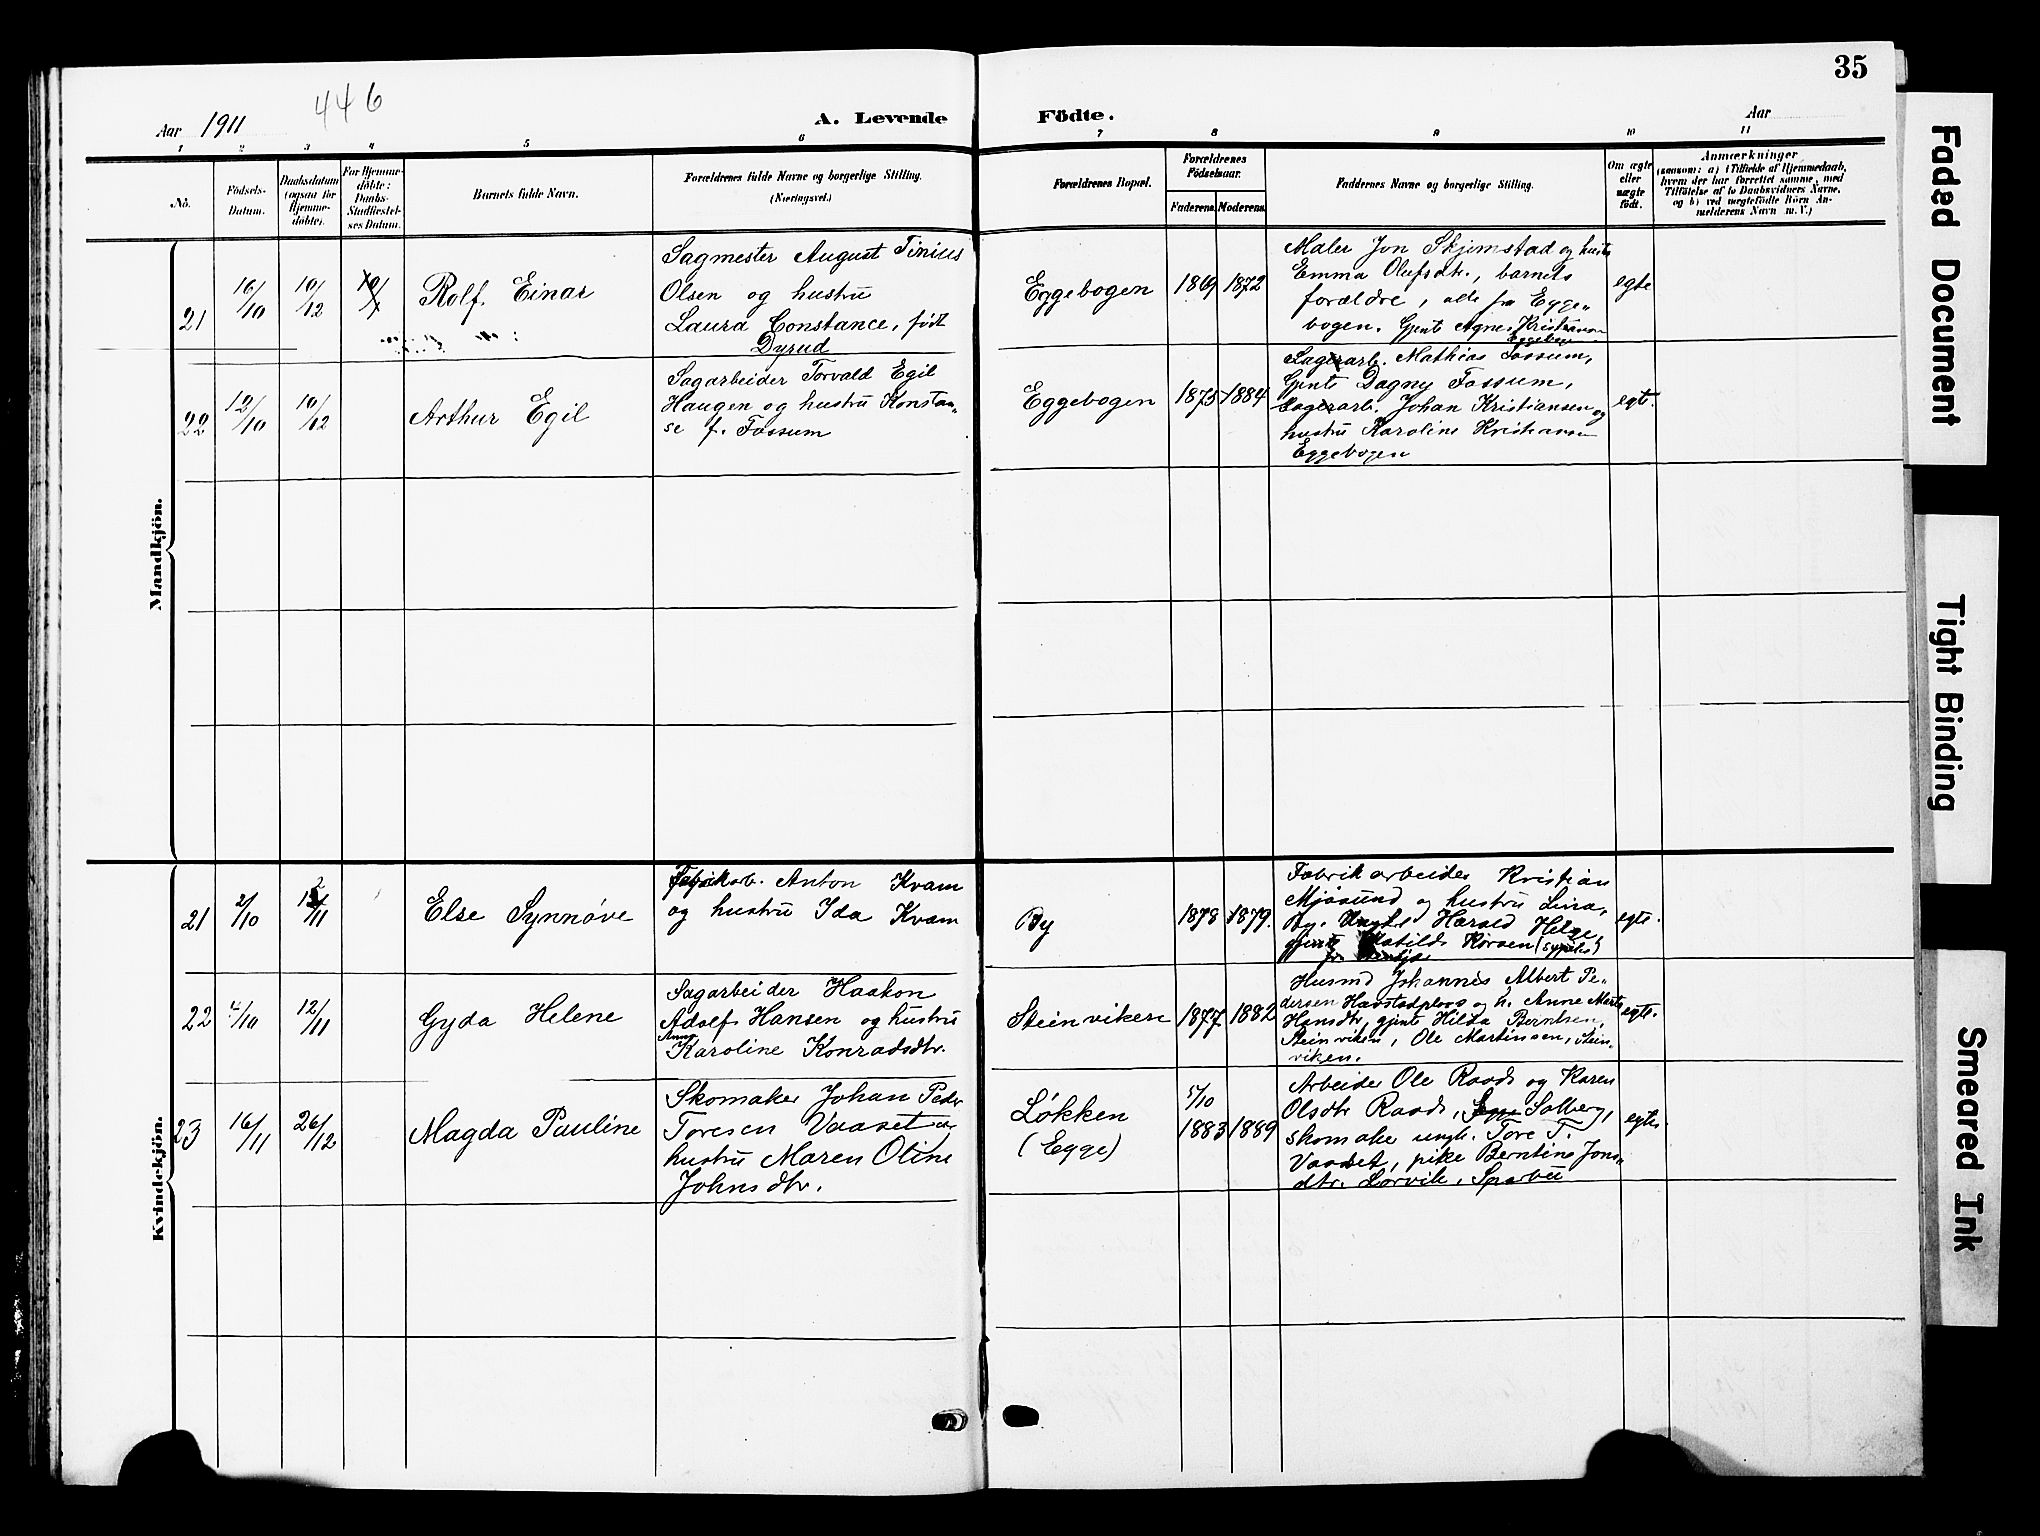 35
446
Aar 1911
A. Levende
Födte.
Aar
1 2 3 4 5 6 7 8 9 10 11
No.
Födsels-
Datum.
Daabsdatum
(ogsaa for
Hjemme-
döbte).
For Hjemme-
döbte:
Daabs-
Stadfæstel-
ses Datum.
Barnets fulde Navn.
Forældrenes fulde Navne og borgerlige Stilling.
(Næringsvei.)
Forældrenes Bopæl.
Forældrenes
Födselsaar.
Faderens. Moderens.
Faddernes Navne og borgerlige Stilling.
Om ægte
eller
uægte
födt.
Anmærkninger
(saasom: a) i Tilfælde af Hjemmedaab,
hvem der har forrettet samme, med
Tilföielse af to Daabsvidners Navne,
og b) ved uægtefödte Börn An-
melderens Navn m. V.)
Mandkjön.
21
16/10
10/12
Rolf. Einar
Sagmester August Tinius
Olsen og hustru
Laura Constance, født
Dyrud
Eggebogen
1869 1872
Maler Jon Skjemstad og hustr
Emma Olufsdtr., barnets
forældre, alle fra Egge-
bogen. Gjente Agnes Kristiansen
Eggebogen
egte
22
12/10
10/12
Arthur Egil
Sagarbeider Torvald Egil
Haugen og hustru Konstan-
se f. Fossum
Eggebogen
1875 1884
Sagarb. Mathias Fossum,
Gjente Dagny Fossum,
Sagarb. Johan Kristiansen og
hustru Karoline Kristiansen
Eggebogen
egt.
Kvindekjön.
21
2/10
12/11
Else Synnøve
Fabrikarb. Anton Kvam
og hustru Ida Kvam
By
1878 1879.
Fabrikarbeider Kristian
Mjösund og hustru Lina,
By. Ungk. Harald Helge,
gjente Matilde
egte.
22
4/10
12/11
Gyda Helene
Sagarbeider Haakon
Adolf Hansen og hustru
Anna
Karoline Konradsdtr.
Steinviken
1877 1882
Husmd Johannes Albert Pe-
dersen Havstadplads og h. Anne Marta
Hansdtr, gjente Hilda Berntsen,
Steinviken, Ole Martinsen, Stein-
viken.
egte.
23
16/11
26/12
Magda Pauline
Skomaker Johan Peder
Toresen Vaaset og
hustru Maren Oline
Johnsdtr.
Løkken
(Egge)
5/10
1883 1889
Arbeider Ole Raade og Karen
Olsdtr Raade, Solberg,
skomaker ungk. Tore T.
Vaaset, pike Berntine Jons-
dtr. Lorvik, Sparbu
egte.
Faded Document
Tight Binding
Smeared Ink